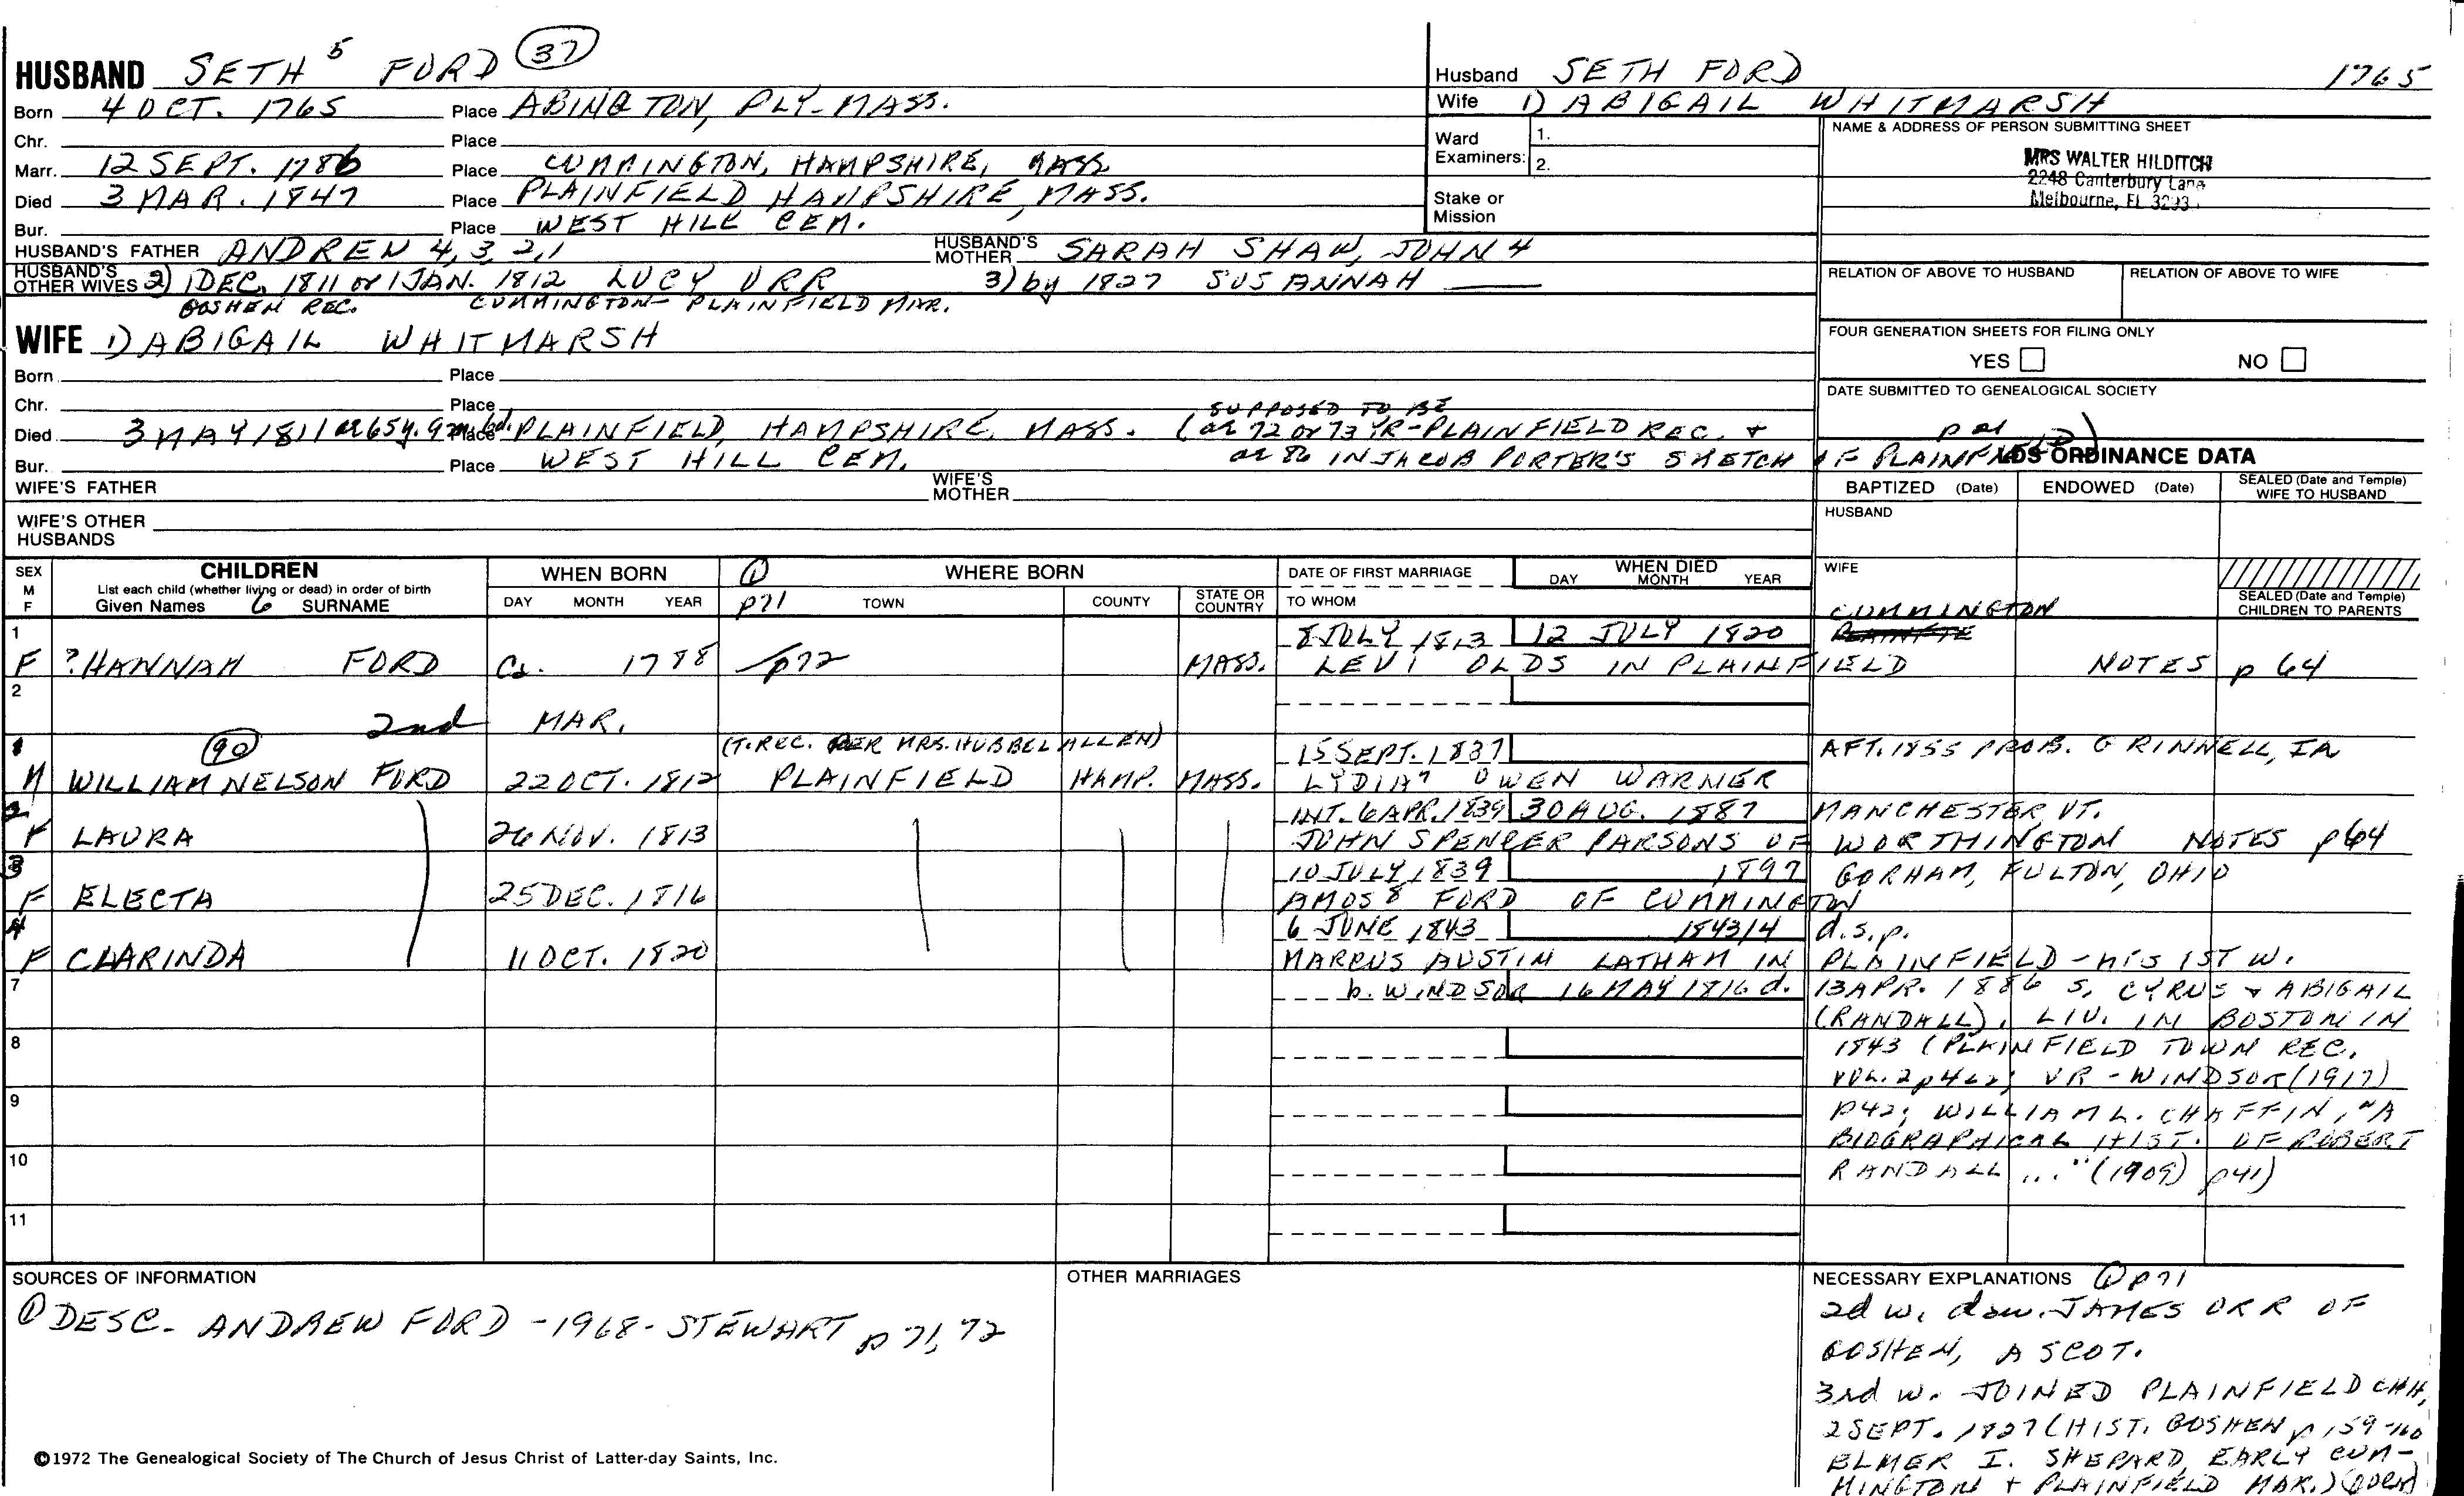 HUSBAND SETH 5 FORD 37
Born 4 OCT. 1765 Place ABINGTON, PLY-MASS.
Chr. Place
Marr. 12 SEPT. 1786 Place CUMMINGTON, HAMPSHIRE, MASS
Died 3 MAR. 1847 Place PLAINFIELD HAMPSHIRE, MASS.
Bur. Place WEST HILL CEM.
HUSBAND'S FATHER ANDREW 4, 3, 2, 1 HUSBAND'S MOTHER SARAH SHAW, JOHN 4
HUSBAND'S OTHER WIVES 2) 1 DEC. 1811 or 1 JAN. 1812 LUCY ORR 3) by 1827 SUSANNAH
GOSHEN REC. CUMMINGTON-PLAINFIELD MAR.
Husband SETH FORD 1765
Wife 1) ABIGAIL WHITMARSH
Ward Examiners: 1. 2.
Stake or Mission
NAME & ADDRESS OF PERSON SUBMITTING SHEET
MRS WALTER HILDITCH
2248 Canterbury Lane
Melbourne, FL
RELATION OF ABOVE TO HUSBAND RELATION OF ABOVE TO WIFE
FOUR GENERATION SHEETS FOR FILING ONLY
YES NO
DATE SUBMITTED TO GENEALOGICAL SOCIETY
WIFE 1) ABIGAIL WHITMARSH
Born Place
Chr. Place
SUPPOSED TO BE
Died 3 MAY 1811 ae 65 y. 9 m. 6d. Place PLAINFIELD, HAMPSHIRE, MASS. (ae 72 or 73 YR-PLAINFIELD REC. +
Bur. Place WEST HILL CEM. ae 86 IN JACOB PORTER'S SKETCH OF PLAINFIELD)
WIFE'S FATHER WIFE'S MOTHER
WIFE'S OTHER HUSBANDS
LDS ORDINANCE DATA
BAPTIZED (Date) ENDOWED (Date) SEALED (Date and Temple) WIFE TO HUSBAND
HUSBAND
WIFE
SEALED (Date and Temple) CHILDREN TO PARENTS
SEX M F CHILDREN List each child (whether living or dead) in order of birth Given Names 6 SURNAME
WHEN BORN DAY MONTH YEAR
① p71 WHERE BORN TOWN COUNTY STATE OR COUNTRY
DATE OF FIRST MARRIAGE TO WHOM
WHEN DIED DAY MONTH YEAR
1 8 JULY 1813 12 JULY 1820 CUMMINGTON
F ? HANNAH FORD Ca. 1788 p72 MASS. LEVI OLDS IN PLAINFIELD NOTES p 64
2
2nd MAR.
1 90 (T. REC. PER MRS. HUBBEL ALLEN) 15 SEPT. 1837 AFT. 1855 PROB. GRINNELL, IA
M WILLIAM NELSON FORD 22 OCT. 1812 PLAINFIELD HAMP. MASS. LYDIA 7 OWEN WARNER
2 INT. 6 APR. 1839 30 AUG. 1887 MANCHESTER, VT.
F LAURA 26 NOV. 1813 JOHN SPENCER PARSONS OF WORTHINGTON NOTES p64
3 10 JULY 1839 1897 GORHAM, FULTON, OHIO
F ELECTA 25 DEC. 1816 AMOS 8 FORD OF CUMMINGTON
4 6 JUNE 1843 1843/4 d.s.p.
F CLARINDA 11 OCT. 1820 MARCUS AUSTIN LATHAM IN PLAINFIELD - his 1ST W.
7 b. WINDSOR 16 MAY 1816 d. 13 APR. 1886 S. CYRUS + ABIGAIL
(RANDALL), LIV. IN BOSTON IN
8 1843 (PLAINFIELD TOWN REC.
VR - WINDSOR (1917)
9 p42; WILLIAM L. CHAFFIN, "A
BIOGRAPHICAL HIST. OF ROBERT
10 RANDALL ..." (1909) p41)
11
SOURCES OF INFORMATION
① DESC. ANDREW FORD - 1968 - STEWART p 71, 72
OTHER MARRIAGES
NECESSARY EXPLANATIONS ① p71
2d w. dau. JAMES ORR OF
GOSHEN, A SCOT.
3rd w. JOINED PLAINFIELD CHH,
2 SEPT. 1827 (HIST. GOSHEN p 159-160
ELMER I. SHEPARD, EARLY CUM-
MINGTON + PLAINFIELD MAR.)
©1972 The Genealogical Society of The Church of Jesus Christ of Latter-day Saints, Inc.